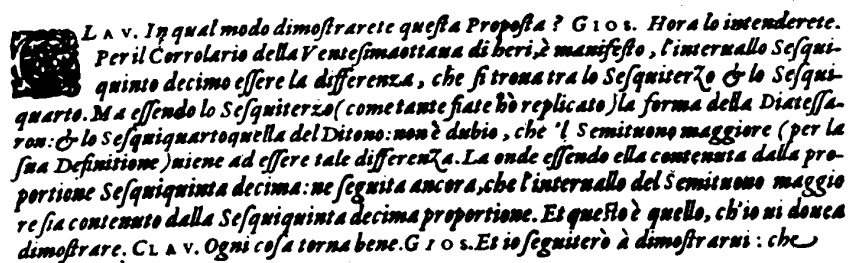 CLAV. In qual modo dimostrarete questa Proposta? GIOS. Hora lo intenderete.
Per il Corrolario della Ventesimaottaua di heri, è manifesto, l'interuallo Sesqui-
quinto decimo essere la differenza, che si troua tra lo Sesquiterzo & lo Sesqui-
quarto. Ma essendo lo Sesquiterzo (come tante fiate hò replicato) la forma della Diatessa-
ron: & lo Sesquiquarto quella del Ditono: non è dubio, che 'l Semituono maggiore (per la
sua Definitione) uiene ad essere tale differenza. La onde essendo ella contenuta dalla pro-
portione Sesquiquinta decima: ne seguita ancora, che l'interuallo del Semituono maggio
re sia contenuto dalla Sesquiquinta decima proportione. Et questo è quello, ch'io ui douea
dimostrare. CLAV. Ogni cosa torna bene. GIOS. Et io seguiterò à dimostrarui: che